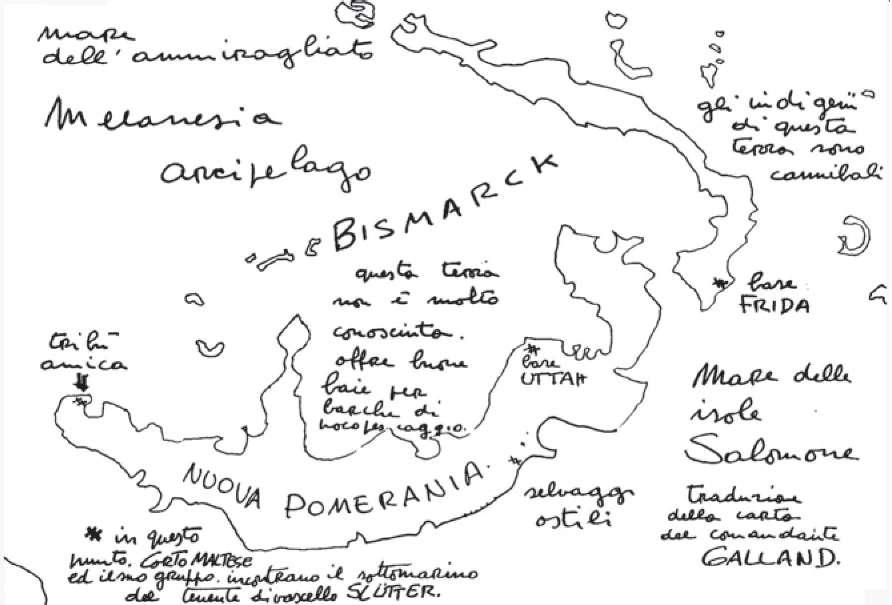 mare
dell'ammiragliato
Melanesia
arcipelago
BISMARCK
gli indigeni
di questa
terra sono
cannibali
base
FRIDA
questa terra
non è molto
conosciuta.
offre buone
baie per
barche di
poco pescaggio.
tribù
amica
base
UTTAH
Mare delle
isole
Salomone
NUOVA POMERANIA.
selvaggi
ostili
traduzione
della carta
del comandante
GALLAND.
* in questo
punto. CORTO MALTESE
ed il suo gruppo. incontrano il sottomarino
del tenente di vascello SLÜTTER.